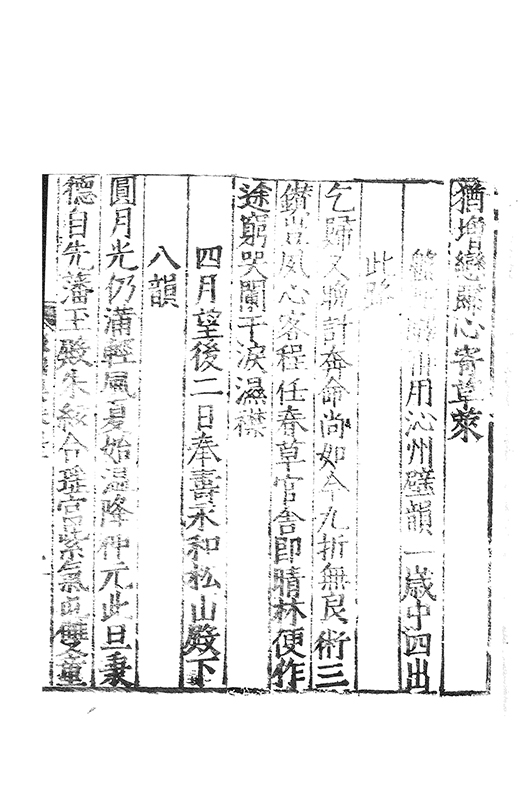 猶增戀心寄草萊
用沁州壁韻一歲中四出
此路
乞歸又計奔命尚如今九折無良術三
夙心客程任春草官舍即晴林便作
途窮哭闌干淚濕襟
四月望後二日奉壽永和松山殿下
八韻
圓月光仍滿輕風夏始温降神元此旦秉
德自先藩玉殿朱絃合瑤宮紫氣屯雙童